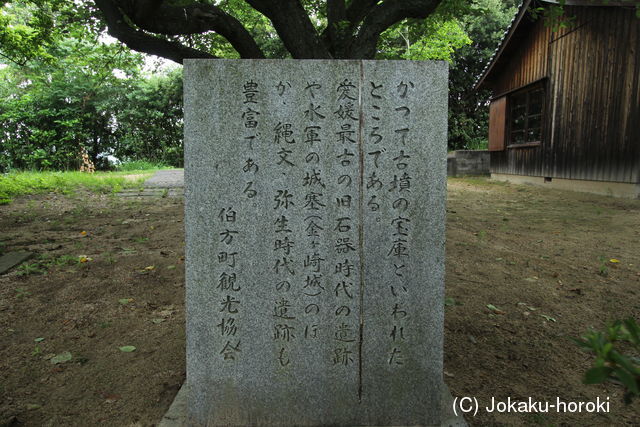 かつて古墳の宝庫といわれた
ところである。
愛媛最古の旧石器時代の遺跡
や水軍の城塞(金ヶ崎城)のほ
か、縄文、弥生時代の遺跡も
豊富である
伯方町観光協会
(C) Jokaku-horoki